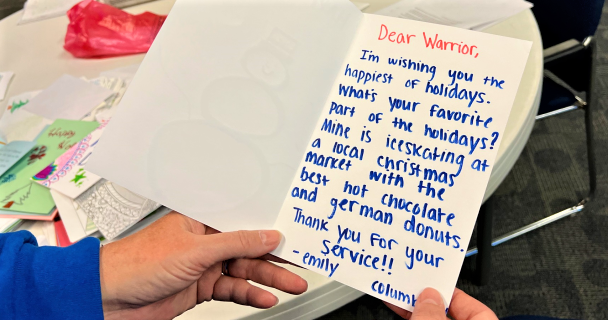 Dear Warrior,
I'm wishing you the
happiest of holidays.
What's your favorite
part of the holidays?
Mine is iceskating at
a local christmas
market with the
best hot chocolate
and german donuts.
Thank you for your
service!!
-emily